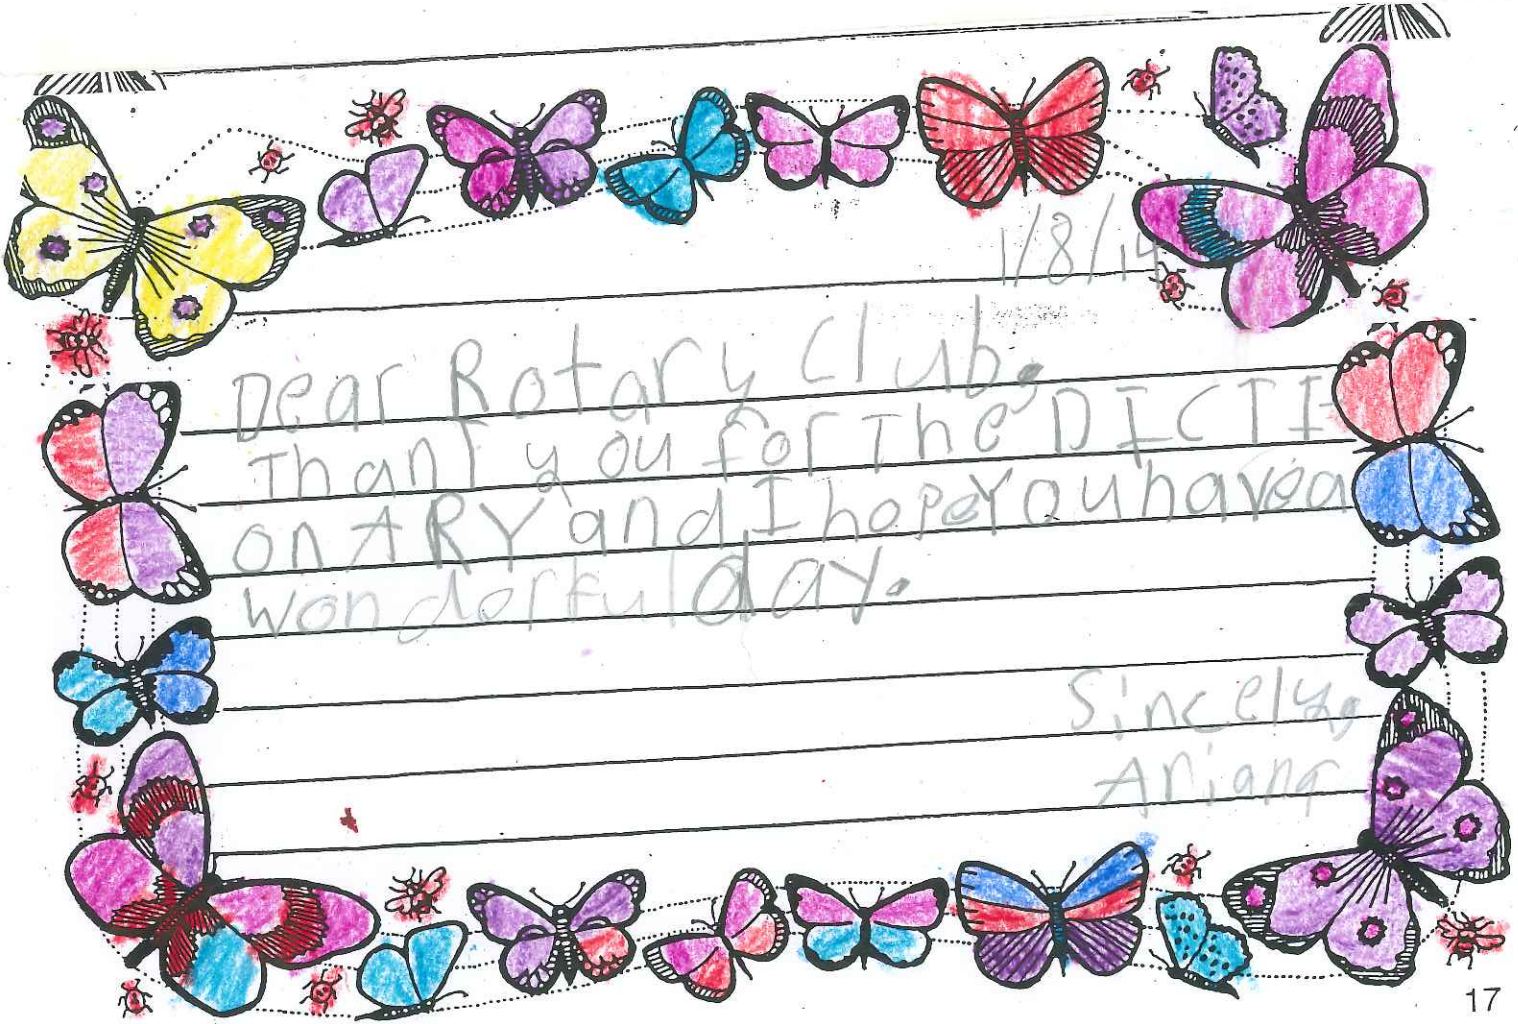 1/8/14
Dear Rotary Club,
Thank you for The DICTI
onARY and I hope You have a
wonderful day.
Sincely,
Ariana
17